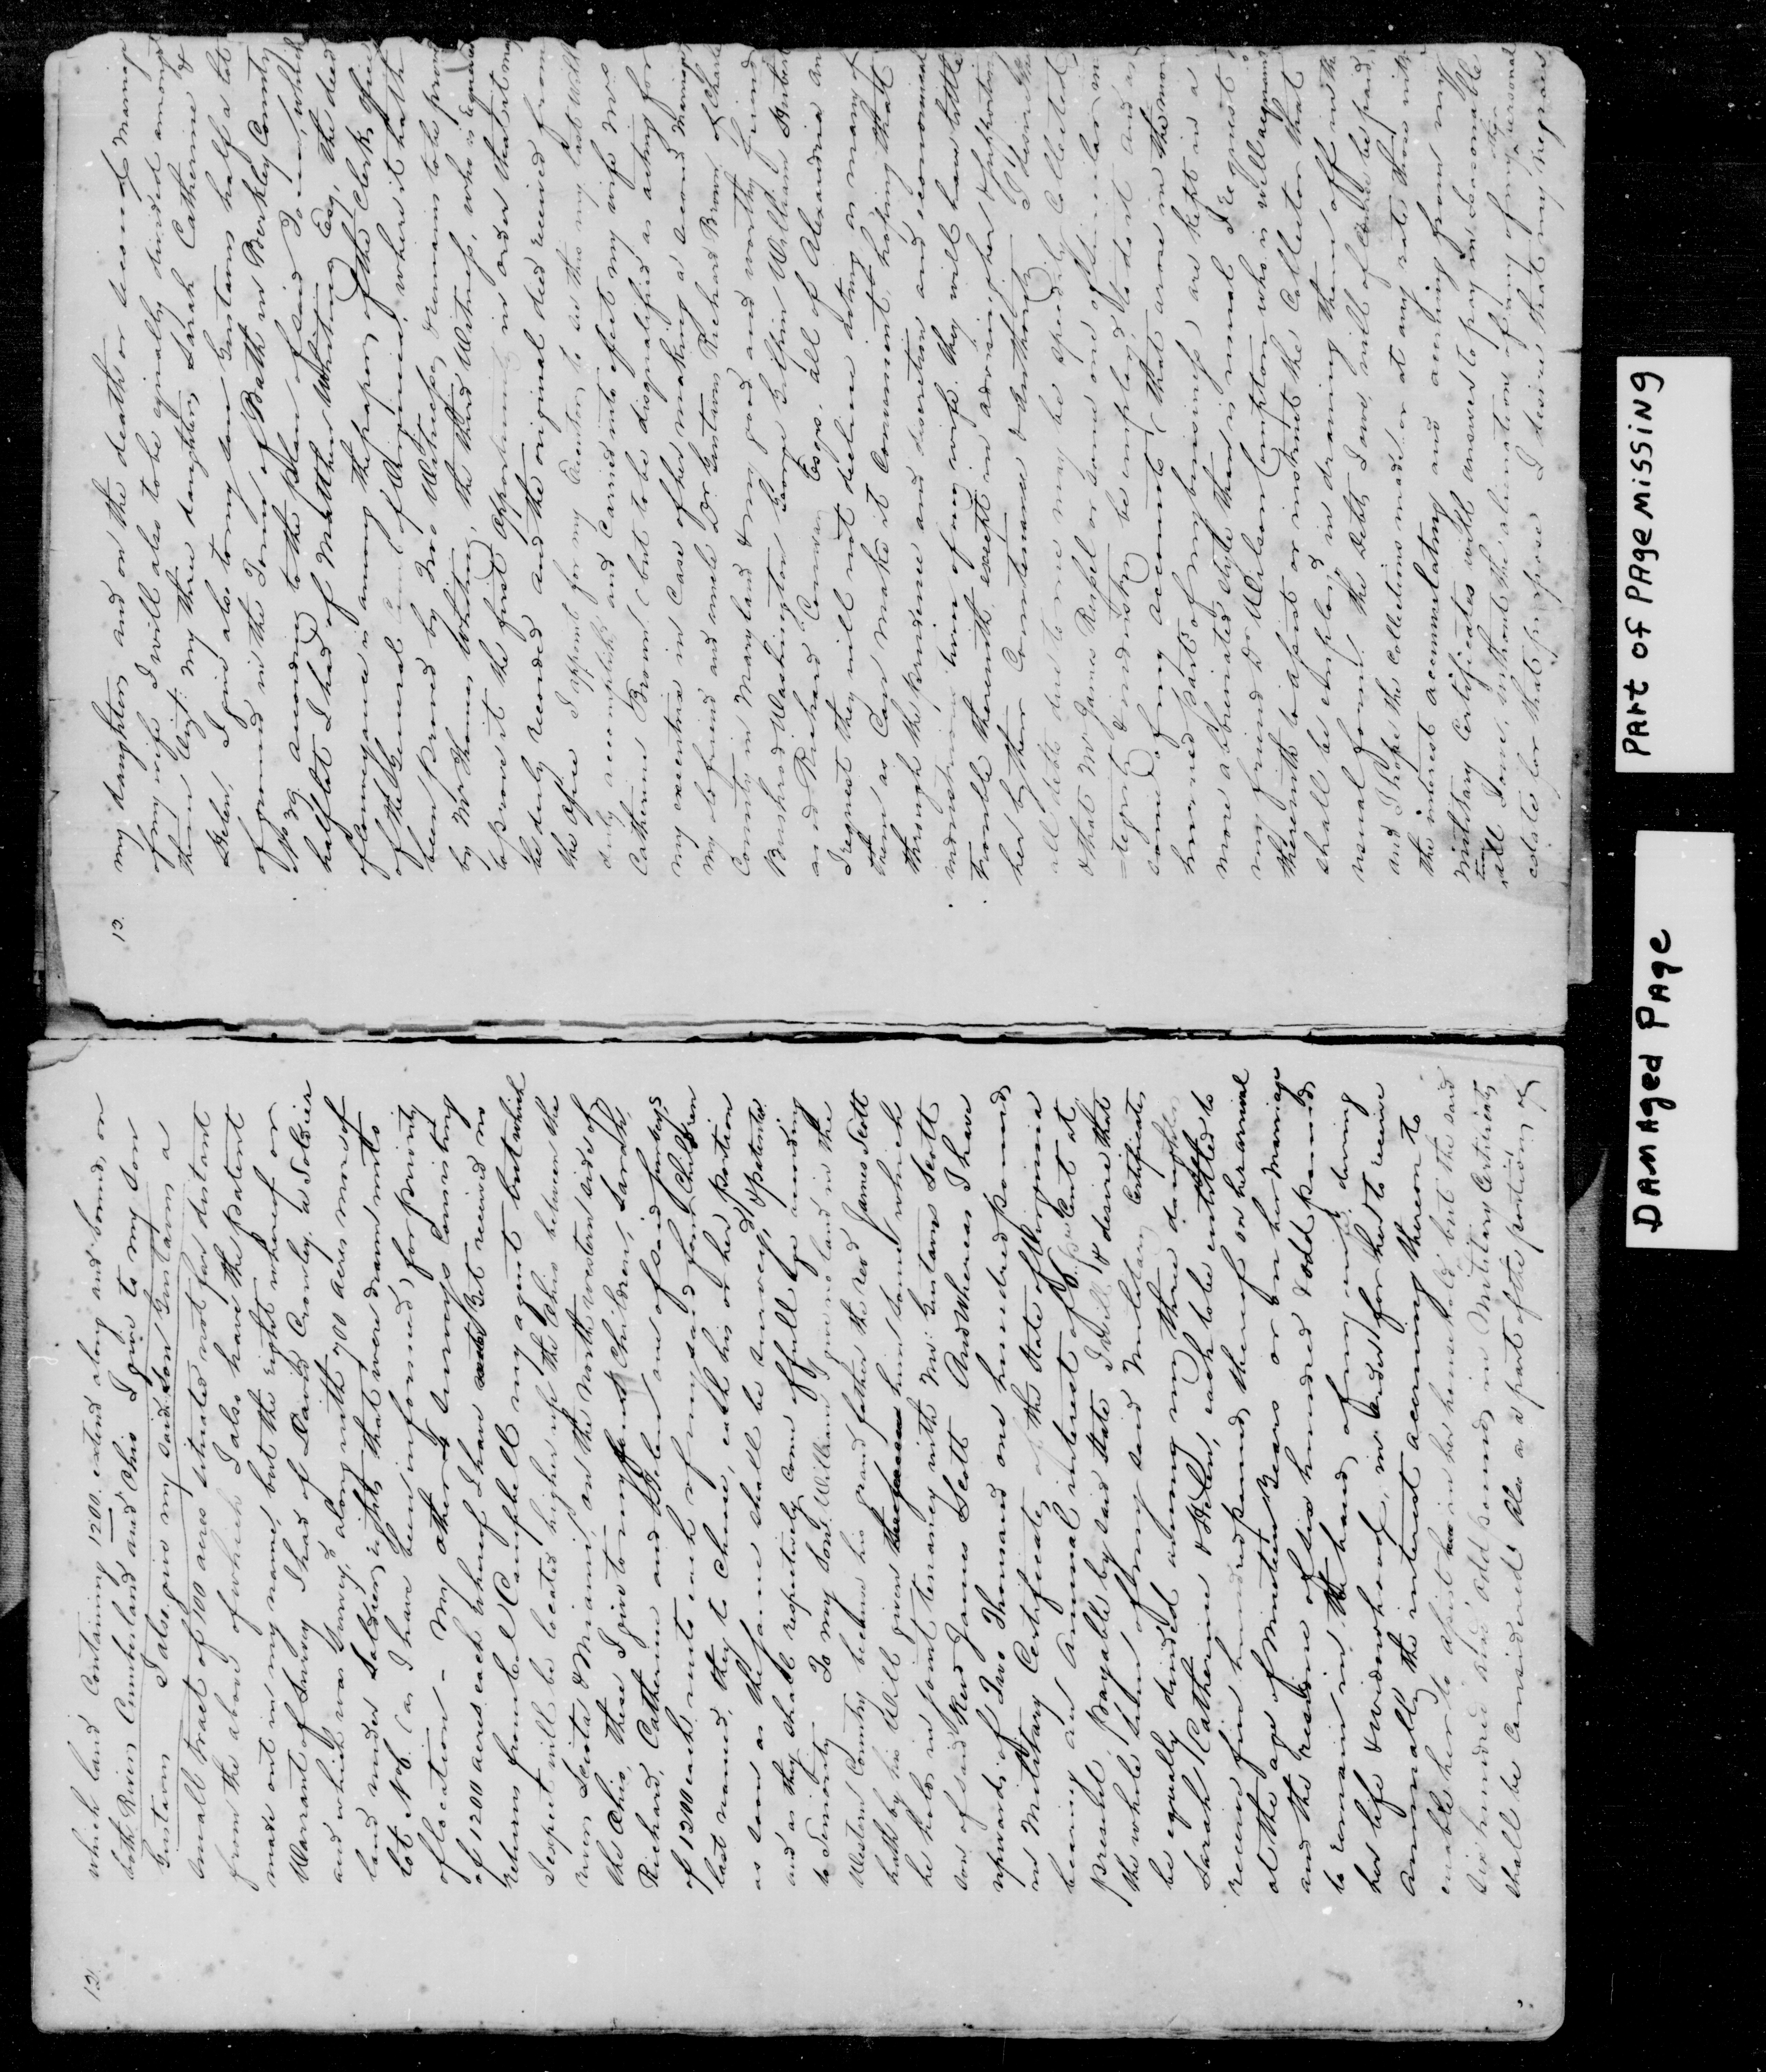 12.
which land Containing 1200. extend along and bound, on
both Rivers Cumberland and Ohio I give to my son
Gustavus I also give my said son Gustavus a
small tract of 100 acres situated not far distant
from the above of which I also have the patent
made out in my name, but the right whereof on
Warrant of Survey I had of David Crowley a Soldier
and which was Survey'd along with 700 acres more of
land under Soldiers rights that were drawn into
Lot No 6. (as I have been informed) for priority
of location - My other 4 Surveys Consisting
of 1200 acres each whereof I have But received no
returns from Col Campbell my agent but which
I expect will be located higher up the Ohio between the
rivers Sciota & Miami, on the North western side of
the Ohio, these I give to my four Children, Sarah,
Richard, Catherine and Helen one of said surveys
of 1200 each, unto each of my said four Children
last named, they to Chuse, each his or her portion
as soon as the same shall be surveyed & patented
and as they shall respectively come of full age according
to Seniority To my Son William I give no land in the
Western Country because his grand father the revd James Scott
hath by his Will given him some which
he holds in joint tenancy with Mr. Gustavus Scott
son of said Revd James Scott And Whereas I have
upwards of Two Thousand one hundred pounds
in Military Certificates of the State of Virginia
bearing an Annual interest of 6 per Cent at
present, payable by said State I will & desire that
the whole sum of my said Military Certificates
be equally divided among my three daughters
Sarah, Catherine & Helen, each to be entitled to
receive five hundred pounds thereof on her arrival
at the age of Nineteen Years or on her Marriage
and the residue of six hundred & odd pounds
to remain in the hands of my wife during
her life & widowhood, in order for her to receive
Annually the interest accruing thereon to
enable her to assist in her household but the said
Six hundred and odd pounds in Military Certificates
shall be Considered Also as a part of the portions of
13.
my daughters and on the death or second Marriage
of my wife I will also to be equally divided amongst
them Vizt: My three daughters Sarah Catherine &
Helen. I give also to my son Gustavus half a lot
of ground in the Town of Bath in Berkley County
No 39 according to the plan of said Town, which
half lot I had of Matthew Whiting Esq, the deed
of Conveyance is among the papers of the Clerks Office
of the General Court of Virginia, where it hath
been proved by Two Witnesses, & remains to be proved
by Mr Thomas Whiting, the third Witness, who is requested
to prove it the first opportunity in order that it may
be duly recorded and the original deed received from
the office I appoint for my Executors, to see this my last Will
duly accomplished and Carried into effect my wife Mrs
Catherine Brown (but to be disqualified as acting for
my executrix in Case of her making a second Marriage
my befriend and uncle Dr. Gustavus Richard Brown of Charles
County in Maryland & my good and worthy friends
Bushrod Washington George Gilpin William Herbert
and Richard Conway Esqs. all of Alexandria and
I request they will not decline acting as many of
them as Can make it Convenient, hoping that
through the prudence and discretion and economical
industrious turn of my wife they will have little
trouble therewith except in advising her & supporting
her by their Countenance & Authority I desire that
all debts due to me may be speedily Collected
& that Mr James Russel or some one of similar in
-tegrity & industry be employed to do it and as
some of my accounts (that arose in the more
hurried parts of my business) are kept in a
more abbreviated style than is usual I request
my friend Dr Wilson Compton who is well acquainted
therewith to assist or instruct the Collector that
shall be employed in drawing them off in the
usual form. the Debts I owe, will of Course be paid,
and I hope the Collections made or at any rates these with
the interest accumulating and accruing from my
Military Certificates will answer to pay in seasonable
time all I owe, without the alienation of any of my personal
estate for that purpose I desire that my Negroes
PART OF PAGE MISSING
DAMAGED PAGE